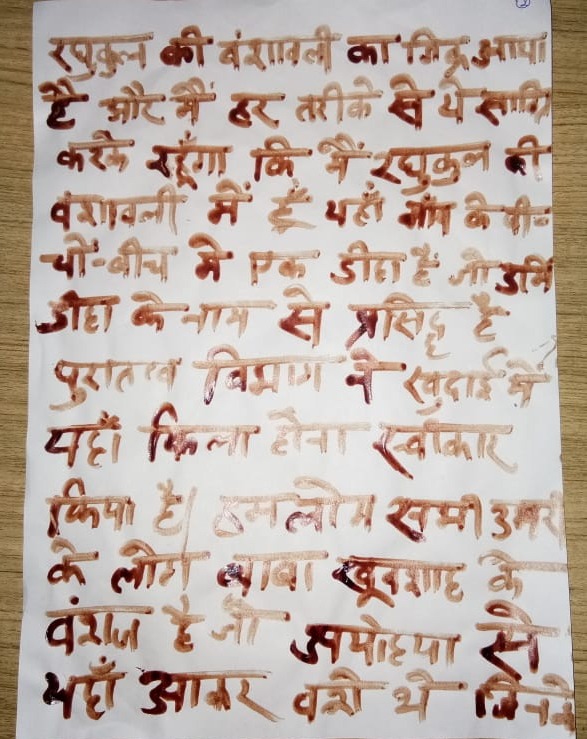 2
रघुकुल की वंशावली का जिक्र आया
है और मैं हर तरीके से ये साबि
करके रहूँगा कि मैं रघुकुल की
वंशावली में हूँ यहाँ के बी
चों-बीच मे एक डीहा है जो
डीहा के नाम से प्रसिद्ध है
पुरातत्व विभाग ने खुदाई मे
यहाँ किला होना स्वीकार
किया है। हमलोग सभी उमरी
के लोग बाबा के
वंशज है जो अयोध्या से
यहाँ आकर बशे थे जिनके